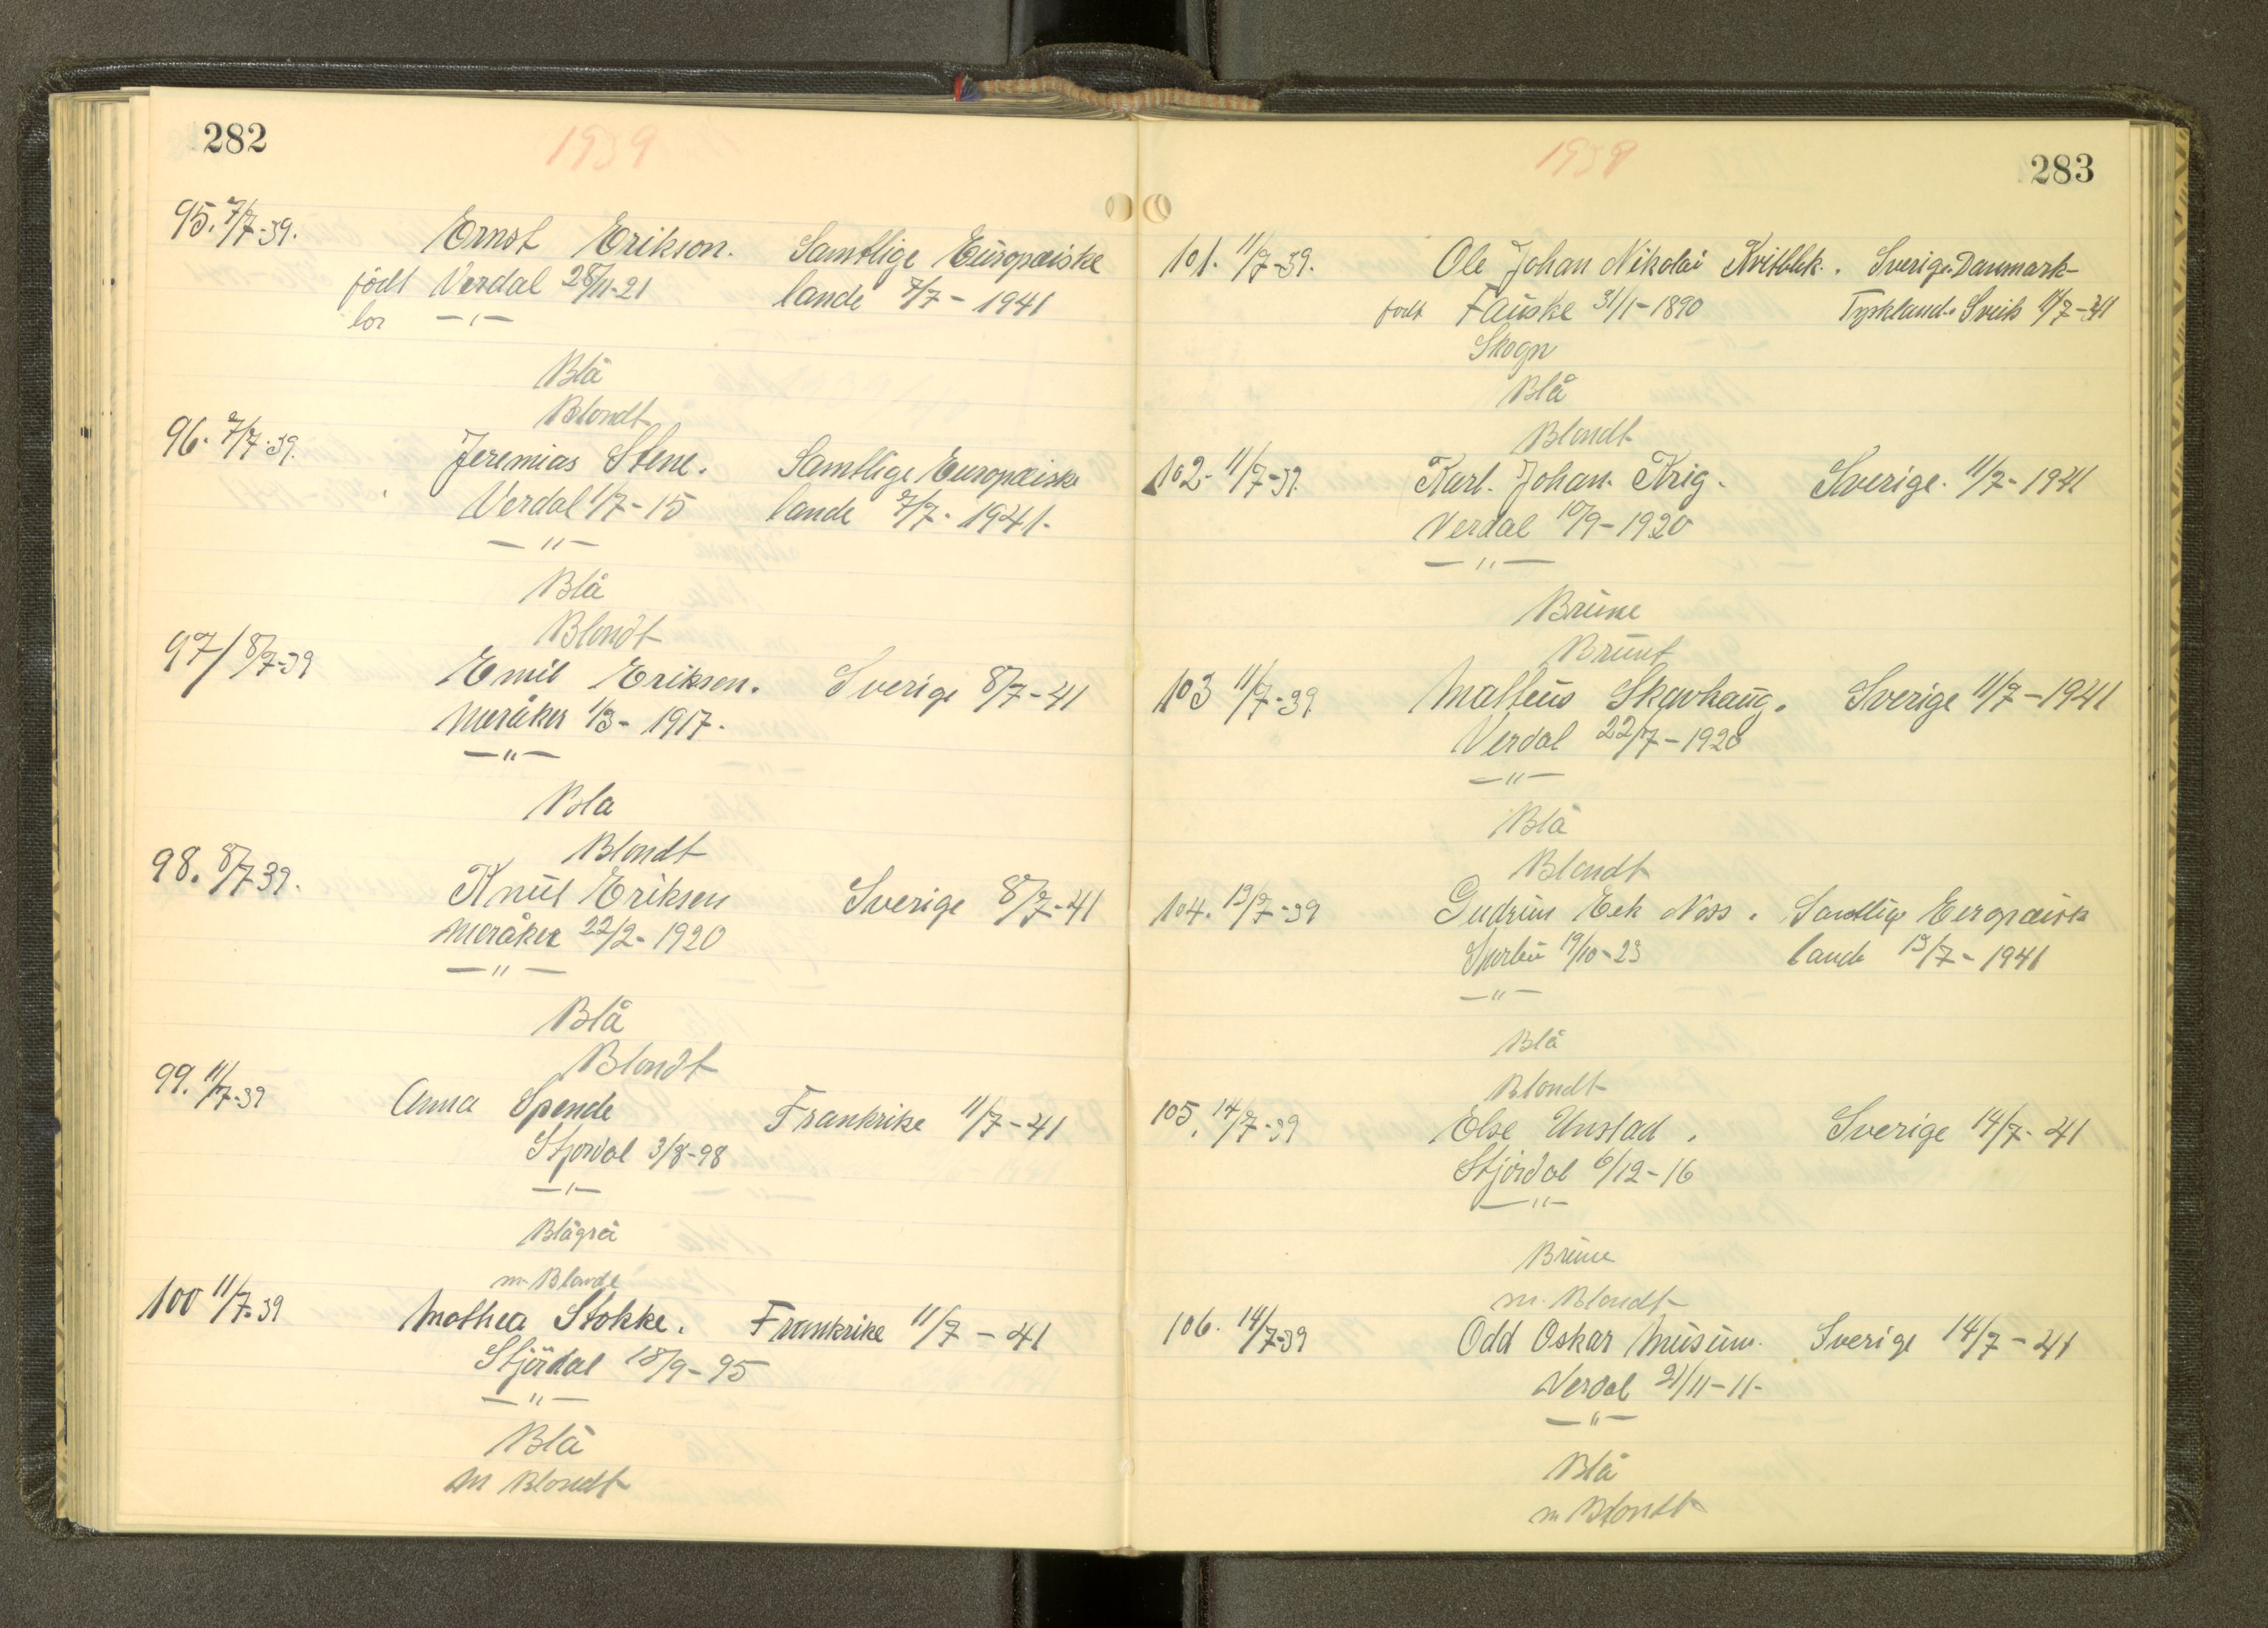 282
1939
95. 7/7-39. Ernst Erikson. Samtlige Europæiske
født Verdal 28/11-21 lande 7/7 - 1941
bor -"-
Blå
Blondt
96. 7/7-39. Jeremias Stene. Samtlige Europæiske
Verdal 1/7-15 lande 7/7. 1941.
-"-
Blå
Blondt
97/ 8/7-39 Emil Eriksen. Sverige 8/7-41
Meråker 1/3- 1917.
-"-
Bla
Blondt
98. 8/7 39. Knut Eriksen Sverige 8/7-41
Meråker 22/2- 1920
-"-
Blå
Blondt
99. 11/7-39 Anna Spende Frankrike 11/7-41
Stjørdal 3/8-98
-"-
Blågrå
m. Blonde
100 11/7.39 Mathea Stokke. Frankrike 11/7 - 41
Stjördal 18/9-95
-"-
Blå
m Blondt
283
1939
101. 11/7-39. Ole Johan Nikolai Sverige. Danmark-
født Fauske 31/1-1890 Tyskland. Sveits 11/7-41
Skogn
Blå
Blondt
102. 11/7-39. Karl. Johan. Krig. Sverige. 11/7-1941
Verdal 10/9-1920
-"-
Brune
Brunt
103 11/7-39 Matteus Skavhaug. Sverige 11/7-1941
Verdal 22/7-1920
-"-
Blå
Blondt
104. 13/7-39 Gudrun Eek Næss. Samtlige Eeropæisk
19/10-23 lande 13/7-1941
-"-
Blå
Blondt
105. 14/7-39 Else Unstad. Sverige 14/7-41
Stjördal 6/12-16
-"-
Brune
m. Blondt
106. 14/7-39 Odd Oskar Musum. Sverige 14/7-41
Verdal 21/11-11-
-"-
Blå
m Blondt